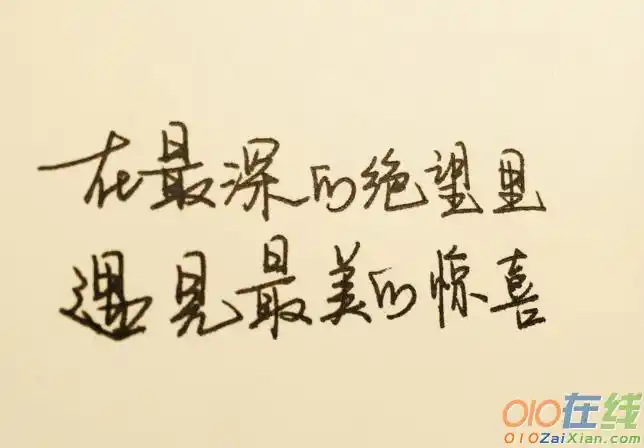 在最深的绝望里
遇見最美的惊喜
010在线
010ZaiXian.com